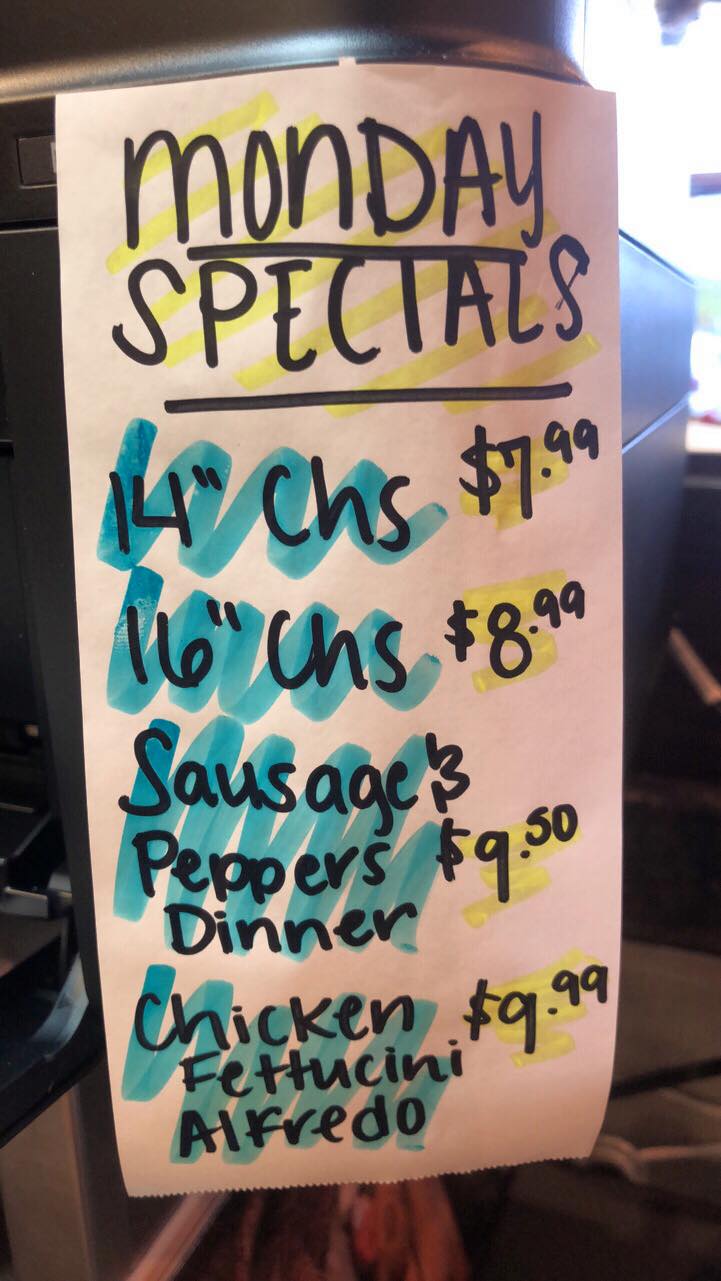 MONDAY
SPECIALS
14" Chs $7.99
16" Chs $8.99
Sausage &
Peppers $9.50
Dinner
Chicken $9.99
Fettucini
Alfredo